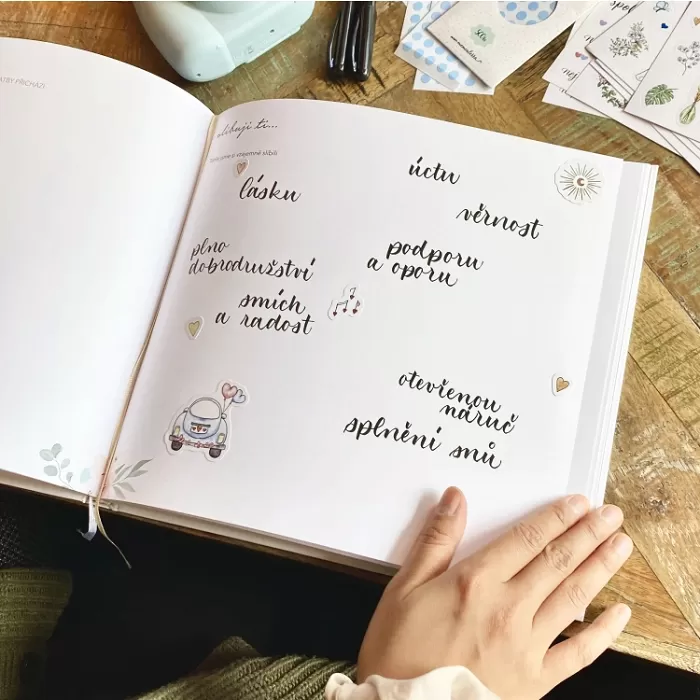 slibuji ti...
úctu
lásku
věrnost
plno
dobrodružství
podporu
a oporu
smích
a radost
otevřenou
náruč
splnění snů